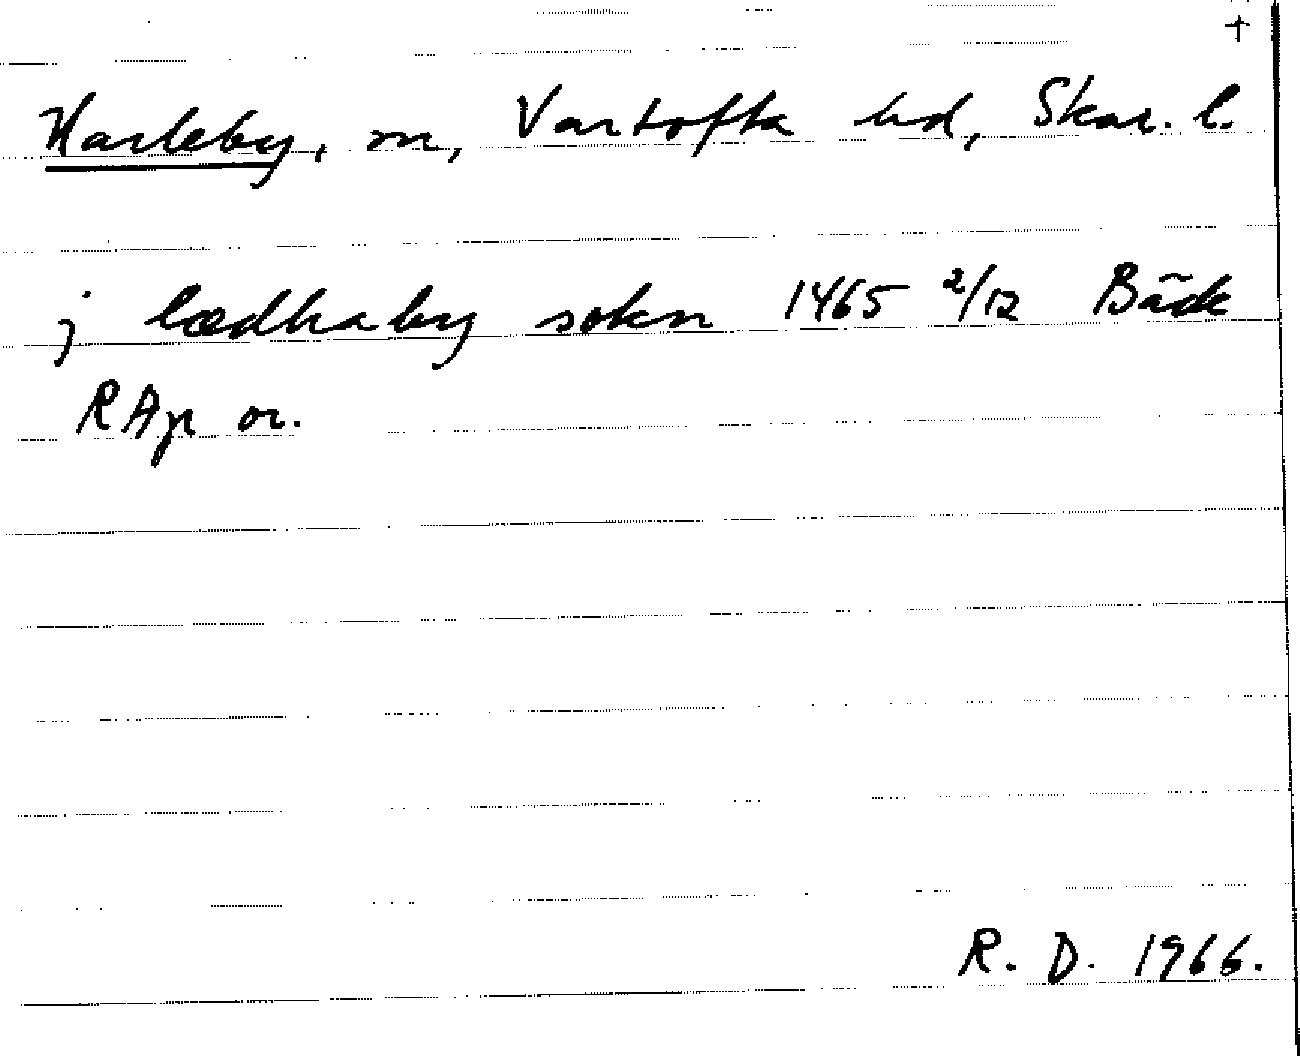 †
Harleby, sn, Vartofta hd, Skar. l.
j lædhaby sokn 1465 2/12 Bäck
RAp or.
R. D. 1966.